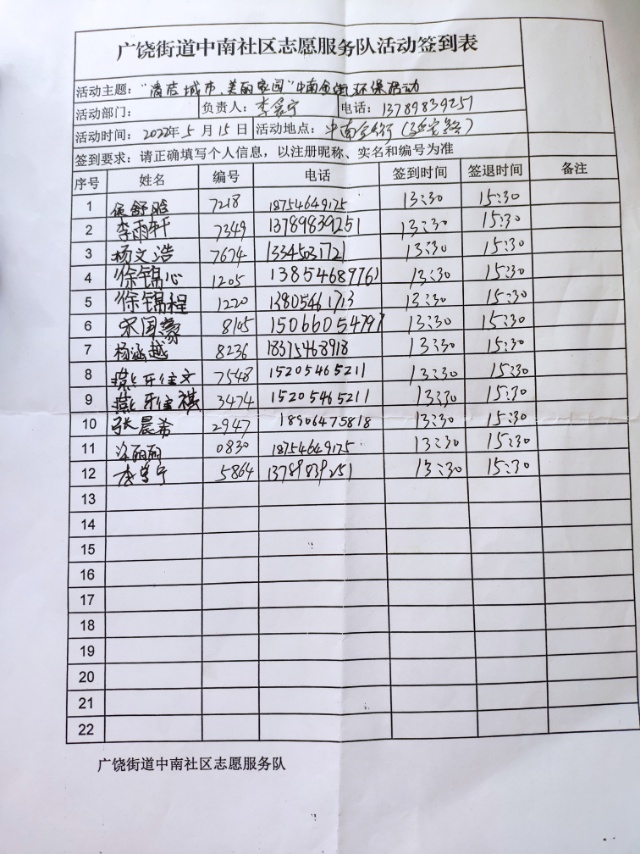 广饶街道中南社区志愿服务队活动签到表
活动主题：“清洁城市、美丽家园”中南金街环保活动
活动部门： 负责人：李宁 电话：13789839251
活动时间：2022年5月15日 活动地点：中南金街
签到要求：请正确填写个人信息，以注册昵称、实名和编号为准
序号 姓名 编号 电话 签到时间 签退时间 备注
1 侯舒晗 7218 18754649175 13:30 15:30
2 李雨轩 7349 13789839251 13:30 15:30
3 杨文浩 7674 13:30 15:30
4 徐锦心 1205 13854689761 13:30 15:30
5 徐锦程 1220 13805461713 13:30 15:30
6 宋国豪 8105 15066054797 13:30 15:30
7 杨涵越 8236 18315468918 13:30 15:30
8 7548 15205465211 13:30 15:30
9 3474 15205465211 13:30 15:30
10 张晨希 2947 18906475818 13:30 15:30
11 0830 18754649175 13:30 15:30
12 5864 13789839251 13:30 15:30
13
14
15
16
17
18
19
20
21
22
广饶街道中南社区志愿服务队